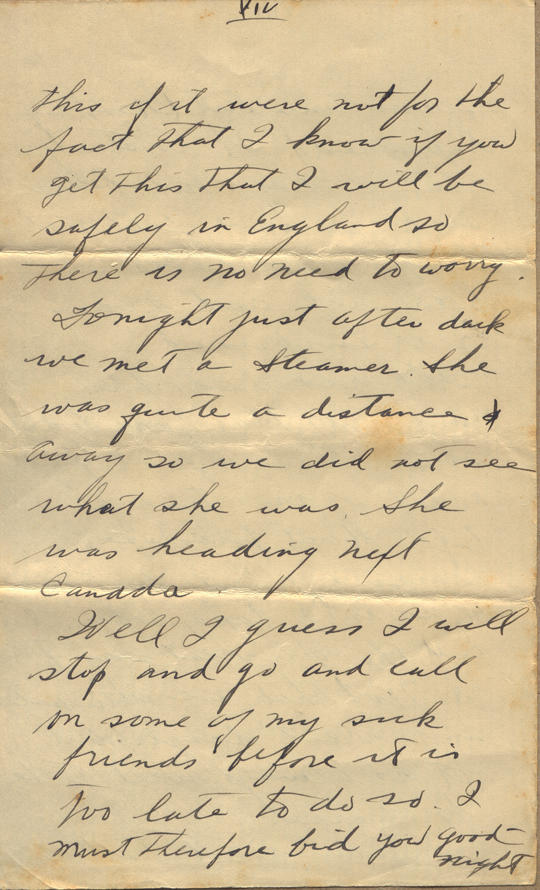 XIV
this if it were not for the
fact that I know if you
get this that I will be
safely in England so
there is no need to worry.
Tonight just after dark
we met a steamer. She
was quite a distance
away so we did not see
what she was. She
was heading
Canada.
Well I guess I will
stop and go and call
on some of my sick
friends before it is
too late to do so. I
must therefore bid you good-
night